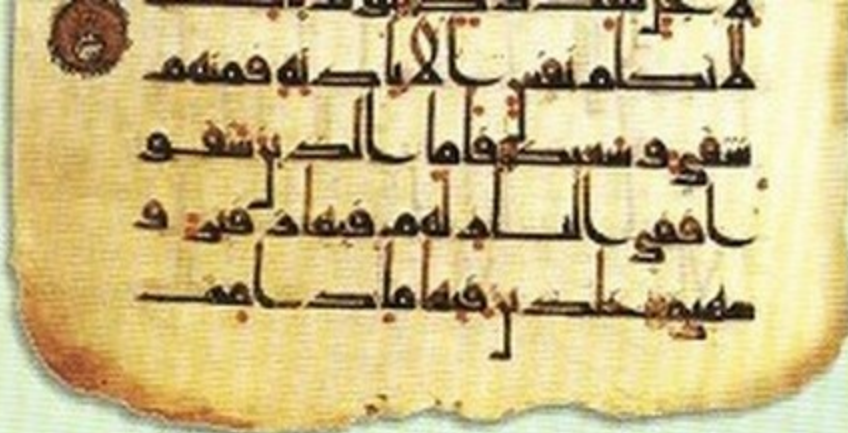 لا تكلم نفس الا باذنه فمنهم
شقي و سعيد فاما الذين شقو
ا ففي النار لهم فيها زفير و
شهيق خلدين فيها ما دامت